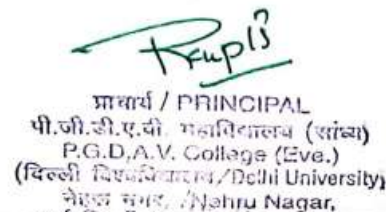 प्राचार्य / PRINCIPAL
पी.जी.डी.ए.वी. महाविद्यालय (सांध्य)
P.G.D,A.V. College (Eve.)
(दिल्ली विश्वविद्यालय/Delhi University)
नेहरू नगर, /Nehru Nagar,